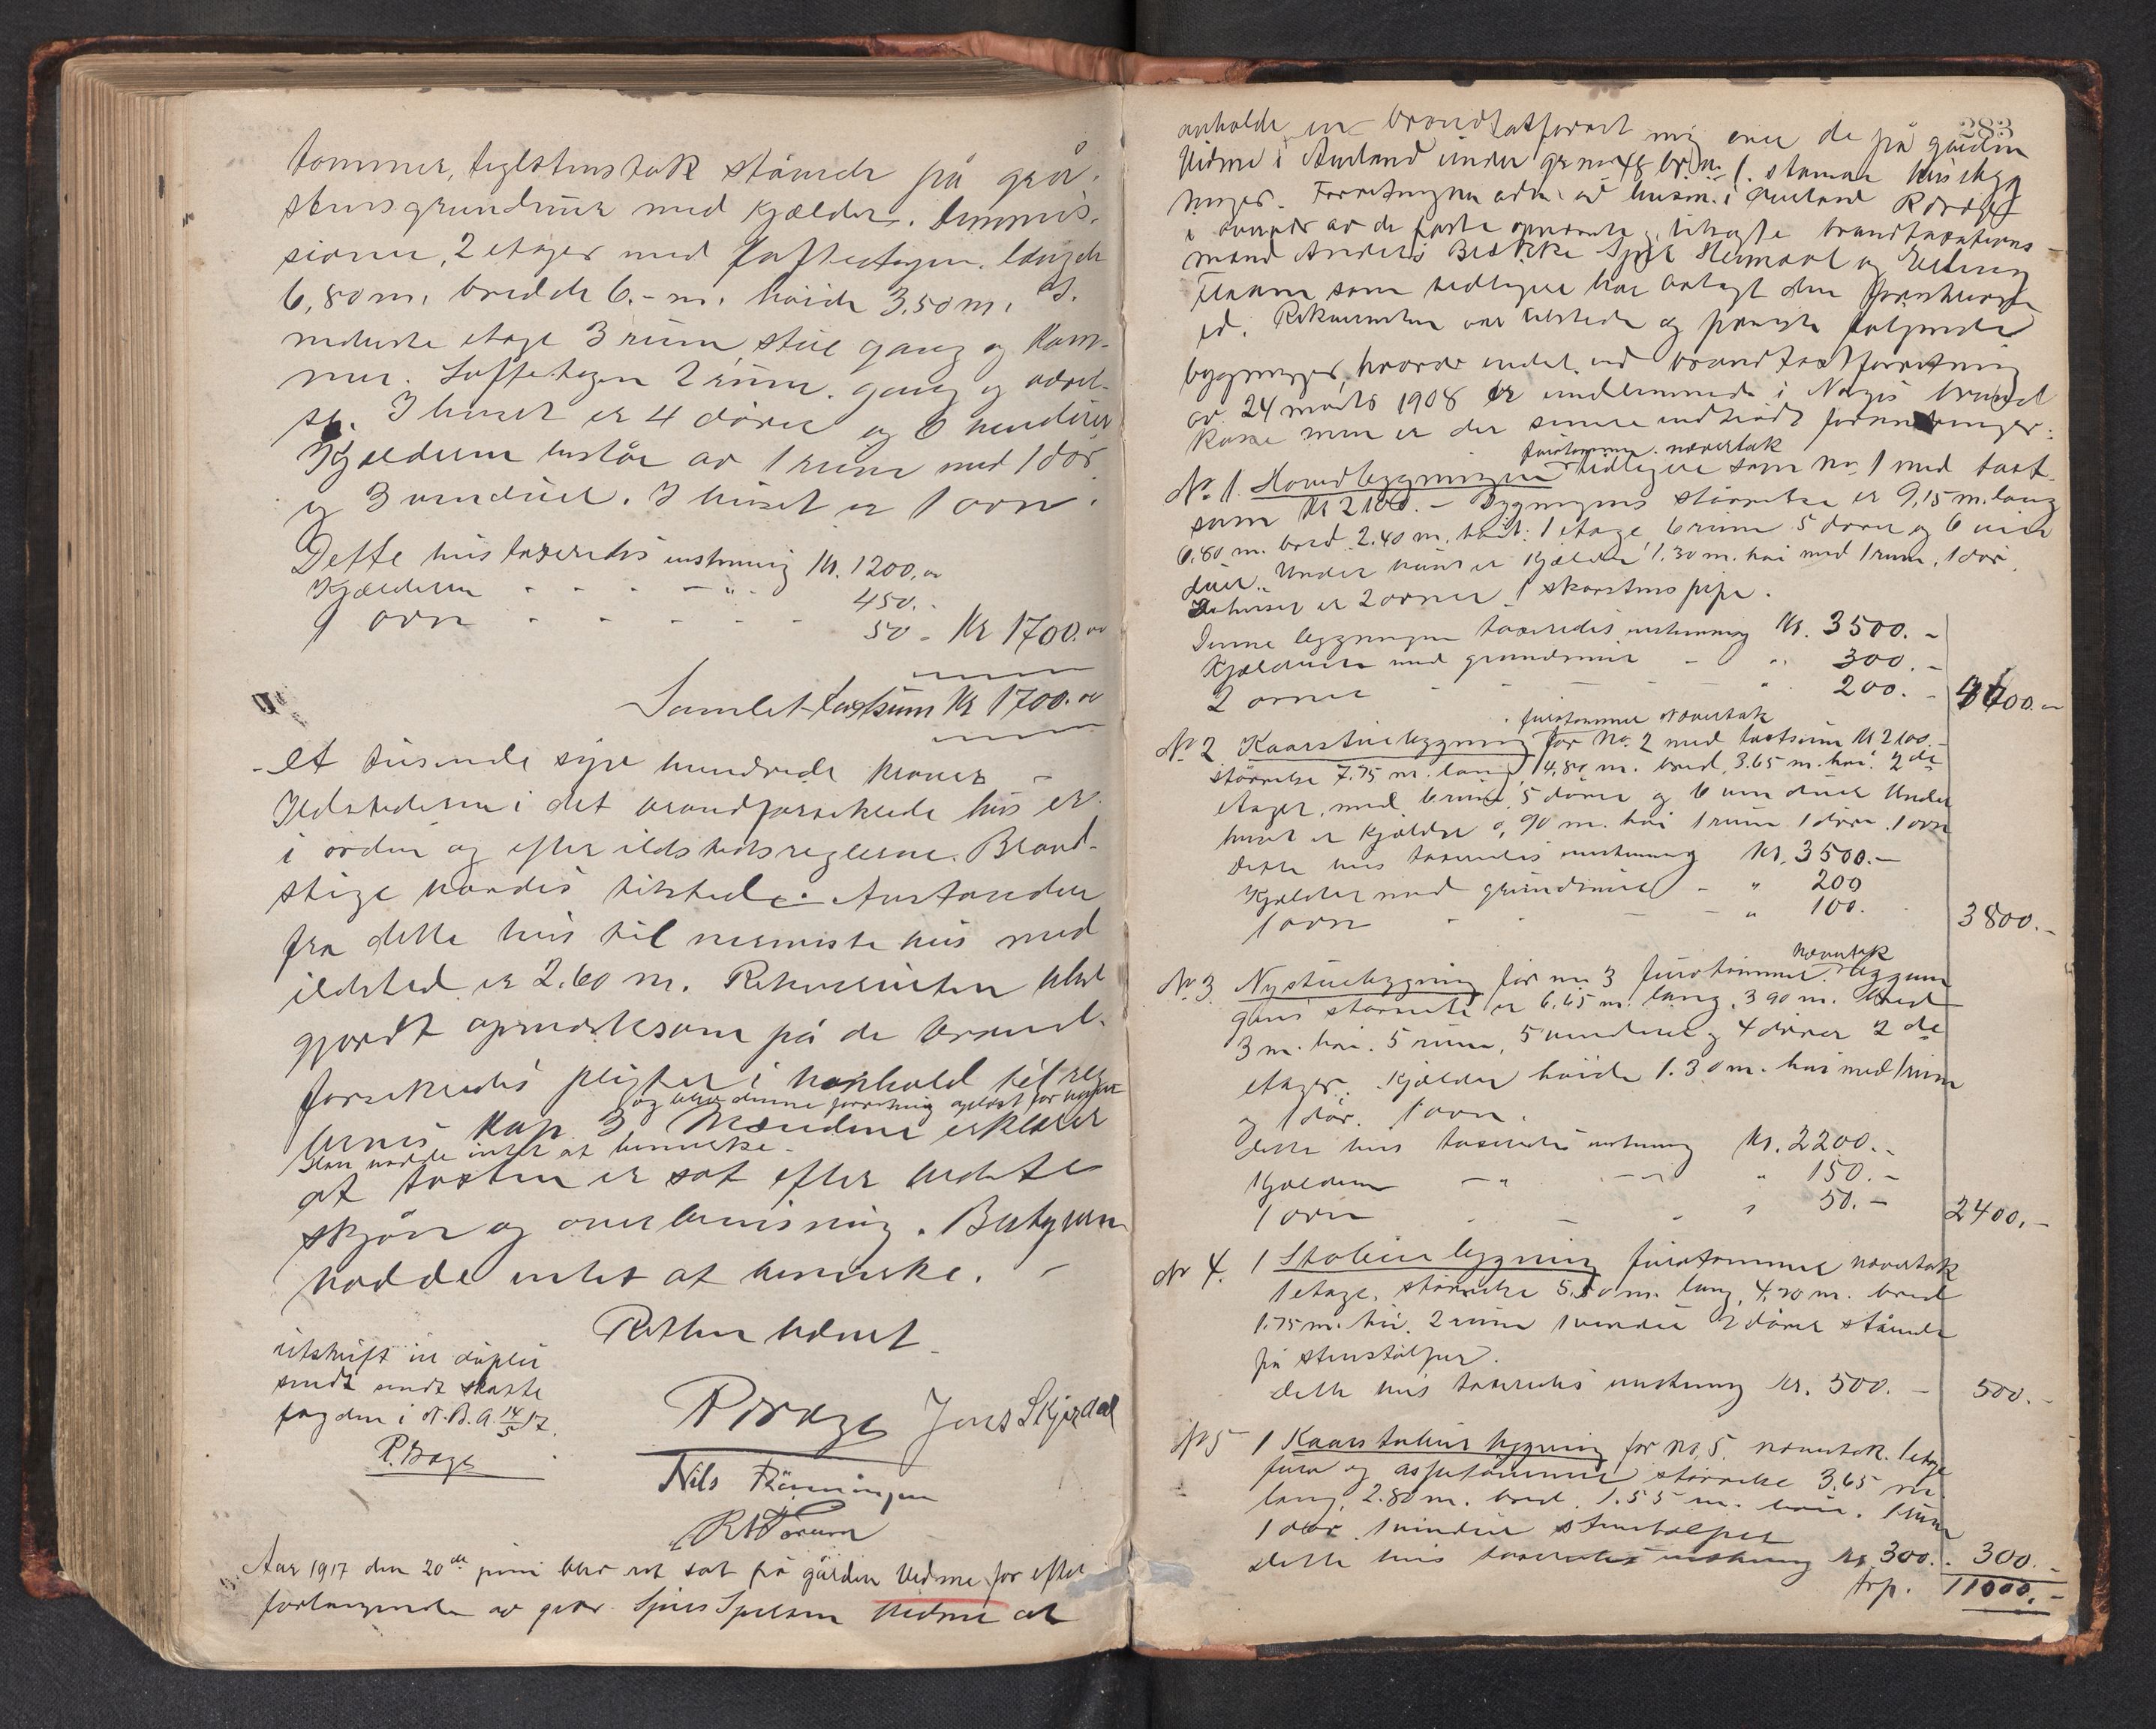 tømmer, teglstenstak stående på grå-
stensgrundmur med kjælder. Dimmis-
sioner, 2 etager med loftsetagen. længde
6,80 m. bredde 6.- m. høide 3,50 m. I
nederste etage 3 rum, stue gang og kam-
mer. Loftsetagen 2 rum. gang og værel-
se. I huset er 4 dører og 6 vinduer
Kjælderen består av 1 rum med 1 dør
og 3 vinduer. I huset er 1 ovn.
Dette hus taxeredes enstemmig Kr. 1200,00
Kjælderen - - - - " - 450.-
1 ovn - - - - - 50 - Kr 1700.00
Samlet taxtsum Kr 1700.00
- et tusinde syv hundrede kroner -
Ildstederne i det brandforsikrede hus er
i orden og efter ildstedsreglerne. Brand-
stige havdes tilstede. Avstanden
fra dette hus til nærmeste hus med
ildsted er 2.60 m. Rekvirenten blev
gjordt opmerksom på de brand-
forsikredes pligter i henhold til reg-
og blev denne forretning oplæst for
lernes kap 3. Mændene erklærer
Han hadde intet at bemerke.
at taxten er sat efter bedste
skjøn og overbevisning. Bestyreren
hadde intet at bemerke. -
Retten hævet
utskrift in duplo
sendt
fogden i N.B.A. 14/5 17.
R. Brage
R Brage Jens Skjerdal
Nils Rønningen
Aar 1917 den 20de juni blev ret sat på gården Vidme for efter
forlangende av gbr. Sjur Sjursen Vidme at
283
avholde en brandtaxtforret- ning over de på gården
Vidme i Aurland under gr no 48 br. no 1. stående husbyg
ninger. Forretningen adm. av lensm. i Aurland R Brage
i overvær av de faste opnævnte, tiltagte brandtaxations-
mænd Anders Bestikke og Erling
som tidligere har avlagt den foreskrevne
ed. Rekvirenten var tilstede og påviste følgende
bygninger, hvorav endel ved brandtaxtforretning
av 24 marts 1908 er indlemmede i Norges brand
kasse men er der senere indtrådt forandringer:
furutømmer. nævertak
No. 1. Hovedbygningen tidligere som no 1 med taxt-
sum Kr 2100.- Bygningens størrelse er 9,15 m. lang
6.80 m. bred 2.40 m. høi: 1 etage 6 rum 5 dører og 6 vin
duer. Under huset er kjælder 1.30 m. høi med 1 rum, 1 dør.
I huset er 2 ovner 1 skorstens pipe.
Denne bygningen taxeredes enstemmig Kr. 3500.-
Kjælderen med grundmur - " 300.-
2 ovner - - - - " 200.- 4000.-
furutømmer nævertak
No 2 Kaarstuebygning før No. 2 med taxtsum Kr 2100.-
størrelse 7.75 m. lang 4,80 m. bred, 3.65 m. høi. 2 de
etager, med 6 rum, 5 dører og 6 vinduer Under
huset er kjælder 0,90 m. høi 1 rum 1 dør. 1 ovn
Dette hus taxeredes enstemmig Kr. 3500.-
Kjælder med grundmur - " 200
1 ovn - - - " 100. 3800.-
nævertak
No 3. Nystuebygning før no 3 furutømmer. Bygnin
gens størrelse er 6.65 m. lang, 3 90 m. bred
3 m. høi. 5 rum, 5 vinduer og 4 dører 2 de
etager. Kjælder høide 1.30 m. høi med 1 rum
og 1 dør. 1 ovn.
Dette hus taxeredes enstemmig Kr. 2200.-
Kjælderen - " - " 150.-
1 ovn - - - " 50.- 2400.-
No 4. 1 Stabursbygning furutømmer nævertak
1 etage. størrelse 5.50 m. lang, 4,20 m. bred
1.75 m. høi. 2 rum 1 vindu 2 dører stående
på stenstolper.
Dette hus taxeredes enstemmig Kr. 500.- 500.-
No 5 1 Kaarstabursbygning før no. 5. nævertak. 1 etage
furu og aspetømmer størrelse 3.65 m.
lang, 2.80 m. bred. 1.55 m. høi. 1 rum
1 dør 1 vindu stenstolper
Dette hus taxeredes enstemmig Kr 300.- 300.-
trp. 11000.-